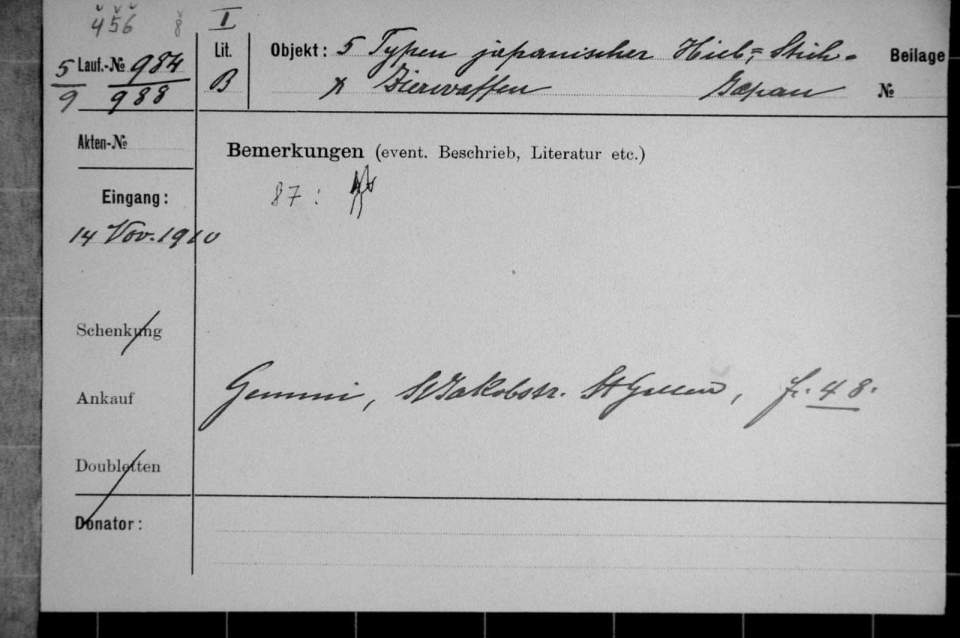 4 5 6 8 I
5/9 Lauf.-№ 984/988 Lit. B Objekt: 5 Typen japanischer Hieb-, Stich-
& Zierwaffen Japan Beilage №
Akten-№
Bemerkungen (event. Beschrieb, Literatur etc.)
87:
Eingang:
14 Nov. 1910
Schenkung
Ankauf Gemmi, St Jakobstr. St Gallen, fr. 48.
Doubletten
Donator: